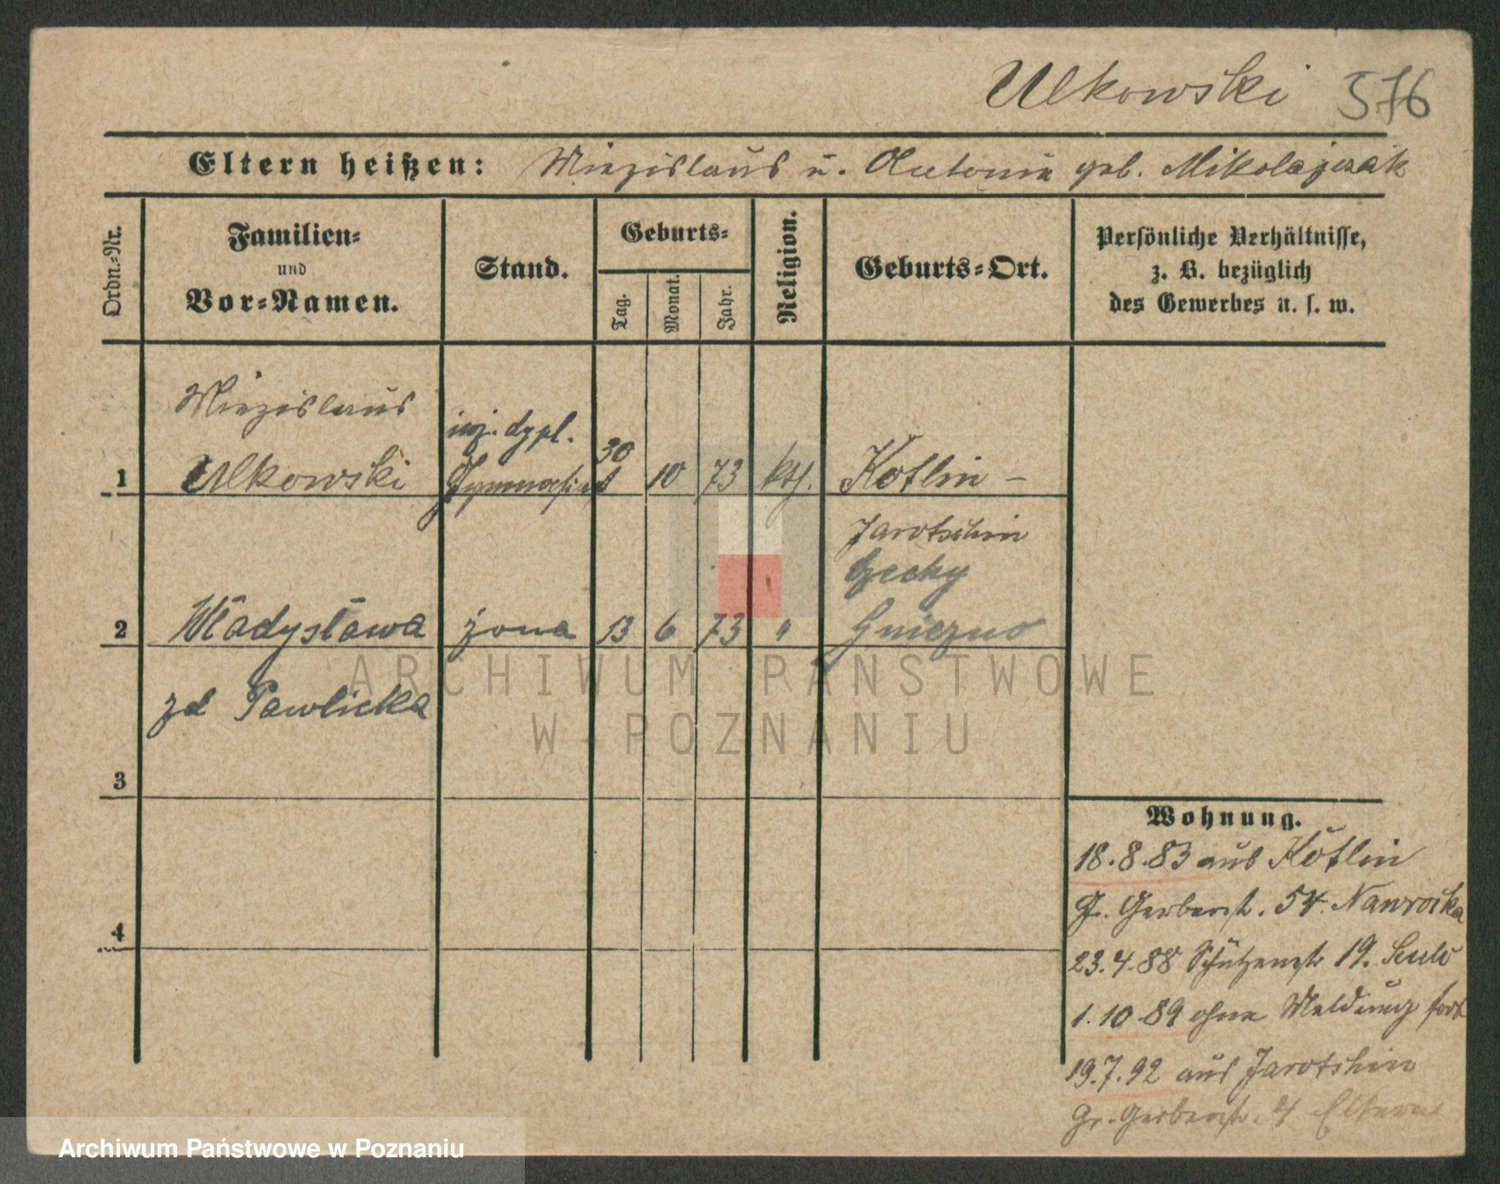 Ulkowski 576
Eltern heißen: Miezislaus u. Antonie geb. Mikolajczak
Ordn.-Nr.
Familien-
und
Vor-Namen.
Stand.
Geburts-
Tag.
Monat.
Jahr.
Religion.
Geburts-Ort.
Persönliche Verhältnisse,
z. B. bezüglich
des Gewerbes u. s. w.
Miezislaus
inż. dypl.
30
1 Ulkowski 10 73 kth. Kotlin –
Jarotschin
Czechy
2 Władysława żona 13 6 73 " Gniezno
zd Pawlicka
3
4
Wohnung.
18.8.83 aus Kotlin
Gr. Gerberst. 54. Nawrocka
23.4.88 Schützenstr 19.
1.10.89 ohne Meldung fort
19.7.92 aus Jarotschin
Gr. Gerberstr. 4 Eltern
ARCHIWUM PAŃSTWOWE
W POZNANIU
Archiwum Państwowe w Poznaniu